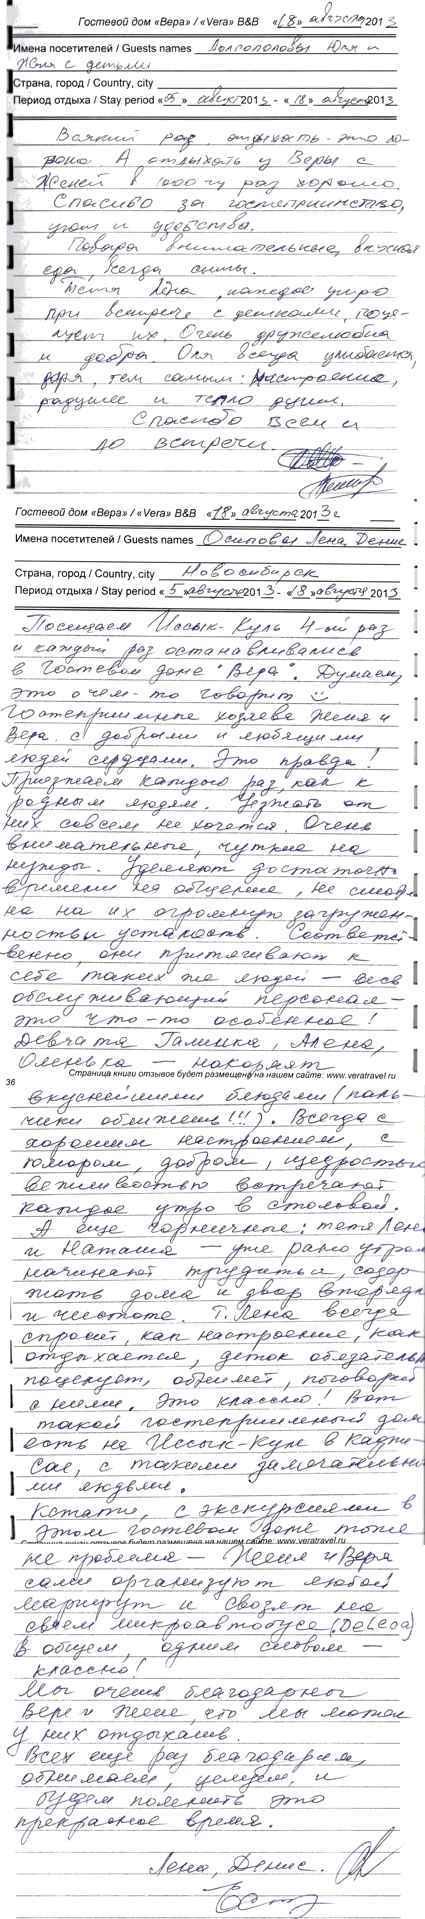 Гостевой дом «Вера» / «Vera» B&B «18» августа 2013
Имена посетителей / Guests names Долгополовы Юля и
Женя с детьми
Страна, город / Country, city
Период отдыха / Stay period «05» август 2013 - «18» августа 2013
Всякий раз отдыхать - это хо-
рошо. А отдыхать у Веры с
Женей в 1000чу раз хорошо.
Спасибо за гостеприимство,
уют и удобства.
Повара внимательные, вкусная
еда, всегда сыты.
Тётя Лена, каждое утро
при встрече с детками, поце-
лует их. Очень дружелюбна
и добра. Оля всегда улыбается,
даря, тем самым: настроение,
радушие и тепло души.
Спасибо Всем и
до встречи.
Гостевой дом «Вера» / «Vera» B&B «18» августа 2013 г
Имена посетителей / Guests names Осиповы Лена, Денис
Страна, город / Country, city Новосибирск
Период отдыха / Stay period «5» августа 2013 - «18» августа 2013
Посещаем Иссык-Куль 4-ый раз
и каждый раз останавливались
в гостевом доме "Вера". Думаем,
это о чем-то говорит ☺.
Гостеприимные хозяева Женя и
Вера с добрыми и любящими
людей сердцами. Это правда!
Приезжаем каждый раз, как к
родным людям. Уезжать от
них совсем не хочется. Очень
внимательные, чуткие на
нужды. Уделяют достаточно
времени на общение, не смотря
на их огромную загружен-
ность и усталость. Соответст-
венно, они притягивают к
себе таких же людей - весь
обслуживающий персонал -
это что-то особенное!
Девчата Галинка, Алена,
Оленька - накормят
Страница книги отзывов будет размещена на нашем сайте: www.veratravel.ru
36
вкуснейшими блюдами (паль-
чики оближешь!!!). Всегда с
хорошим настроением, с
юмором, добром, щедростью,
вежливостью встречают
каждое утро в столовой.
А еще горничные: тетя Лена
и Наташа - уже рано утром
начинают трудиться, содер-
жать дома и двор в порядке
и чистоте. Т. Лена всегда
спросит, как настроение, как
отдыхается, деток обязательно
поцелует, обнимет, поговорит
с ними. Это классно! Вот
такой гостеприимный дом
есть на Иссык-Куле в Каджи-
Сае, с такими замечательны-
ми людьми.
Кстати, с экскурсиями в
этом гостевом доме тоже
Страница книги отзывов будет размещена на нашем сайте: www.veratravel.ru
не проблема - Женя и Вера
сами организуют любой
маршрут и свозят на
своем микроавтобусе (Deleca)
В общем, одним словом -
классно!
Мы очень благодарны
Вере и Жене, что мы можем
у них отдыхать.
Всех еще раз благодарим,
обнимаем, целуем, и
будем помнить это
прекрасное время.
Лена, Денис.